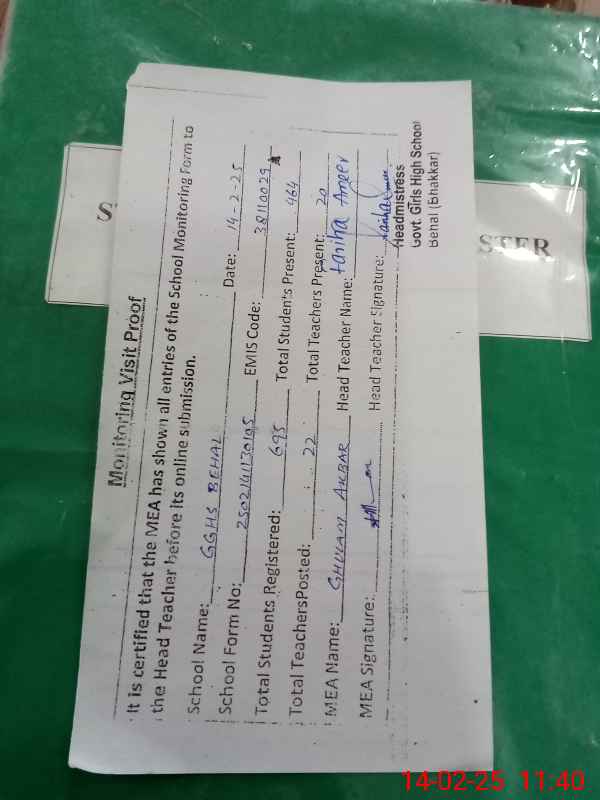 Monitoring Visit Proof
It is certified that the MEA has shown all entries of the School Monitoring Form to
the Head Teacher before its online submission.
School Name: GGHS BEHAL Date: 14-2-25
School Form No: 25021411730195 EMIS Code: 38110029
Total Students Registered: 695 Total Students Present: 464
Total TeachersPosted: 22 Total Teachers Present: 20
MEA Name: GHULAM AKBAR Head Teacher Name: Fariha
MEA Signature: Head Teacher Signature:
Headmistress
Govt. Girls High School
Behal (Bhakkar)
S
STER
14-02-25 11:40